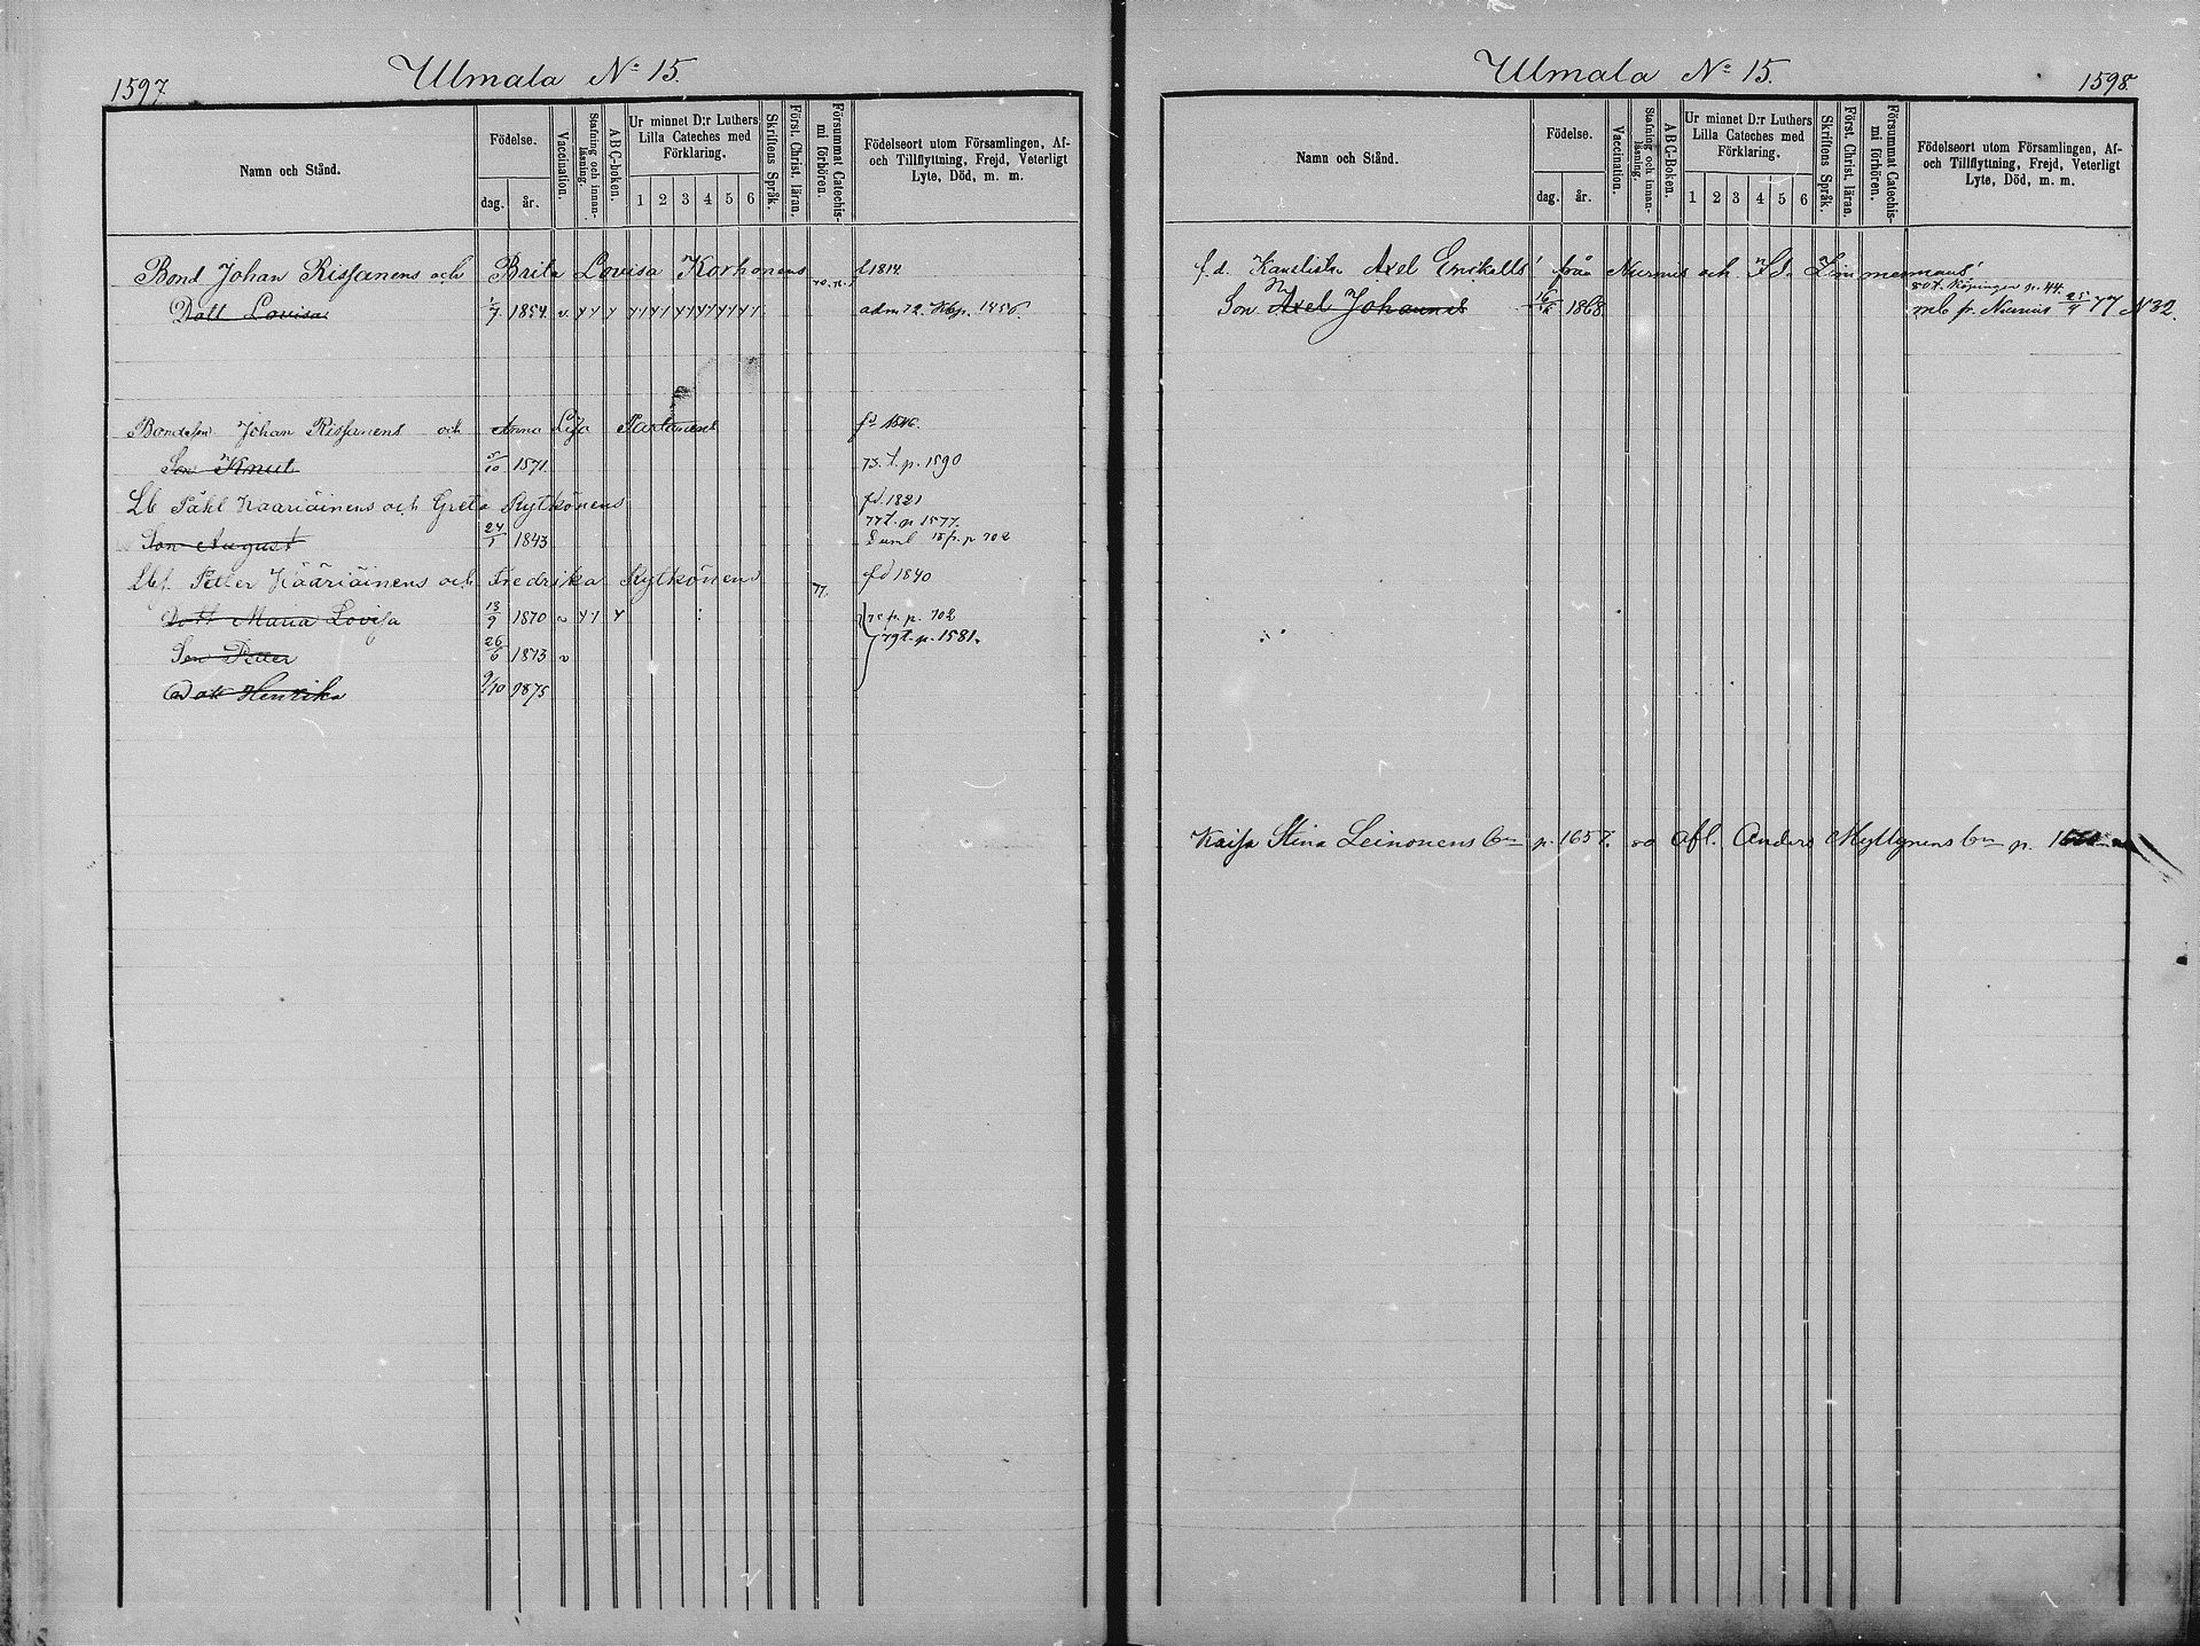 1597
Ulmala No 15.
Namn och Stånd.
Födelse.
dag.
år.
Vaccination.
Stafning och innan-
läsning.
ABC-boken.
Ur minnet D:r Luthers
Lilla Cateches med
Förklaring.
1 2 3 4 5 6
Skriftens Språk.
Först. Christ. läran.
Försummat Catechis-
mi förhören.
Födelseort utom Församlingen, Af-
och Tillflyttning, Frejd, Veterligt
Lyte, Död, m. m.
Bond Johan Rissanens och Brita Lovisa Korhonens f 1814
Dott Lovisa 1854 v adm 72.
Bondeson Johan Rissanens och Anna Lisa Partanens fd 1846.
Son Knut 5/10 1871. 73. t. p. 1590
Lb Påhl Kaariäinens och Greta Rytkönens fd. 1821
77 t. p 1577.
Son August 24/1 1843 p 702
Petter Kääriäinens och Fredrika Rytkönens 77. fd 1840
Dott Maria Lovisa 13/9 1870 v fr. p. 702
79 t. p. 1581.
Son Petter 26/6 1873 v
Dott Henrika 9/10 1875
Ulmala No 15.
1598.
Namn och Stånd.
Födelse.
dag.
år.
Vaccination.
Stafning och innan-
läsning.
ABC-Boken.
Ur minnet D:r Luthers
Lilla Cateches med
Förklaring.
1 2 3 4 5 6
Skriftens Språk.
Först. Christ. läran.
Försummat Catechis-
mi förhören.
Födelseort utom Församlingen, Af-
och Tillflyttning, Frejd, Veterligt
Lyte, Död, m. m.
f. d. Kanslisten Axel från Nurmis och Zimmermans'
80 t. Köpingen p. 44.
Son Axel Johannes 1868 mb fr. Nurmis 77 N 32.
Kaisa Stina Leinonens bn p. 1657. so afl. Anders Myllynens bn p.